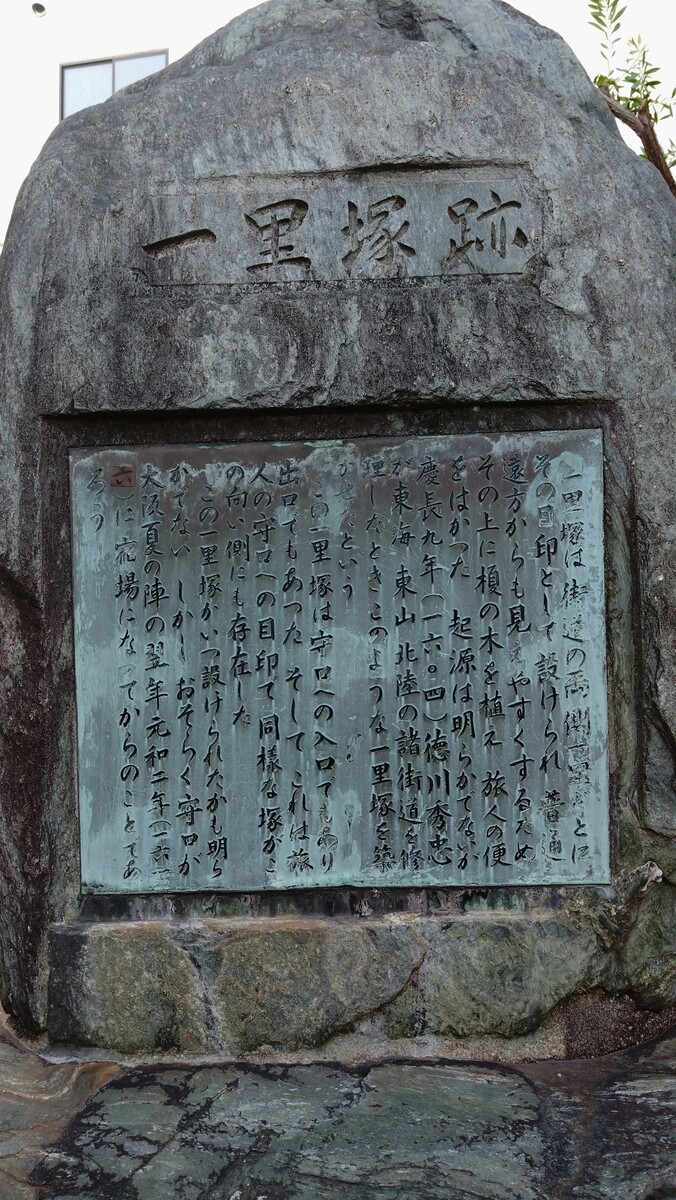 一里塚跡
一里塚は街道の両側一里ごとに
その目印として設けられ 普通
遠方からも見えやすくするため
その上に榎の木を植え 旅人の便
をはかつた 起源は明らかでないが
慶長九年(一六〇四)徳川秀忠
が東海 東山 北陸の諸街道を修
理したときこのような一里塚を築
かせたという
この一里塚は守口への入口でもあり
出口でもあつた そして これは旅
人の守口への目印で 同様な塚がこ
の向い側にも存在した
この一里塚がいつ設けられたかも明ら
かでない しかし おそらく守口が
大阪夏の陣の翌年元和二年(一六一
六)に宿場になつてからのことであ
ろう